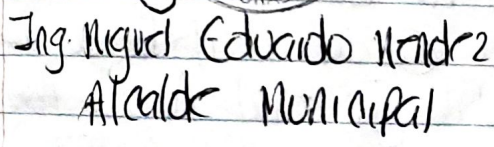 Ing. Miguel Eduardo Mendez
Alcalde Municipal